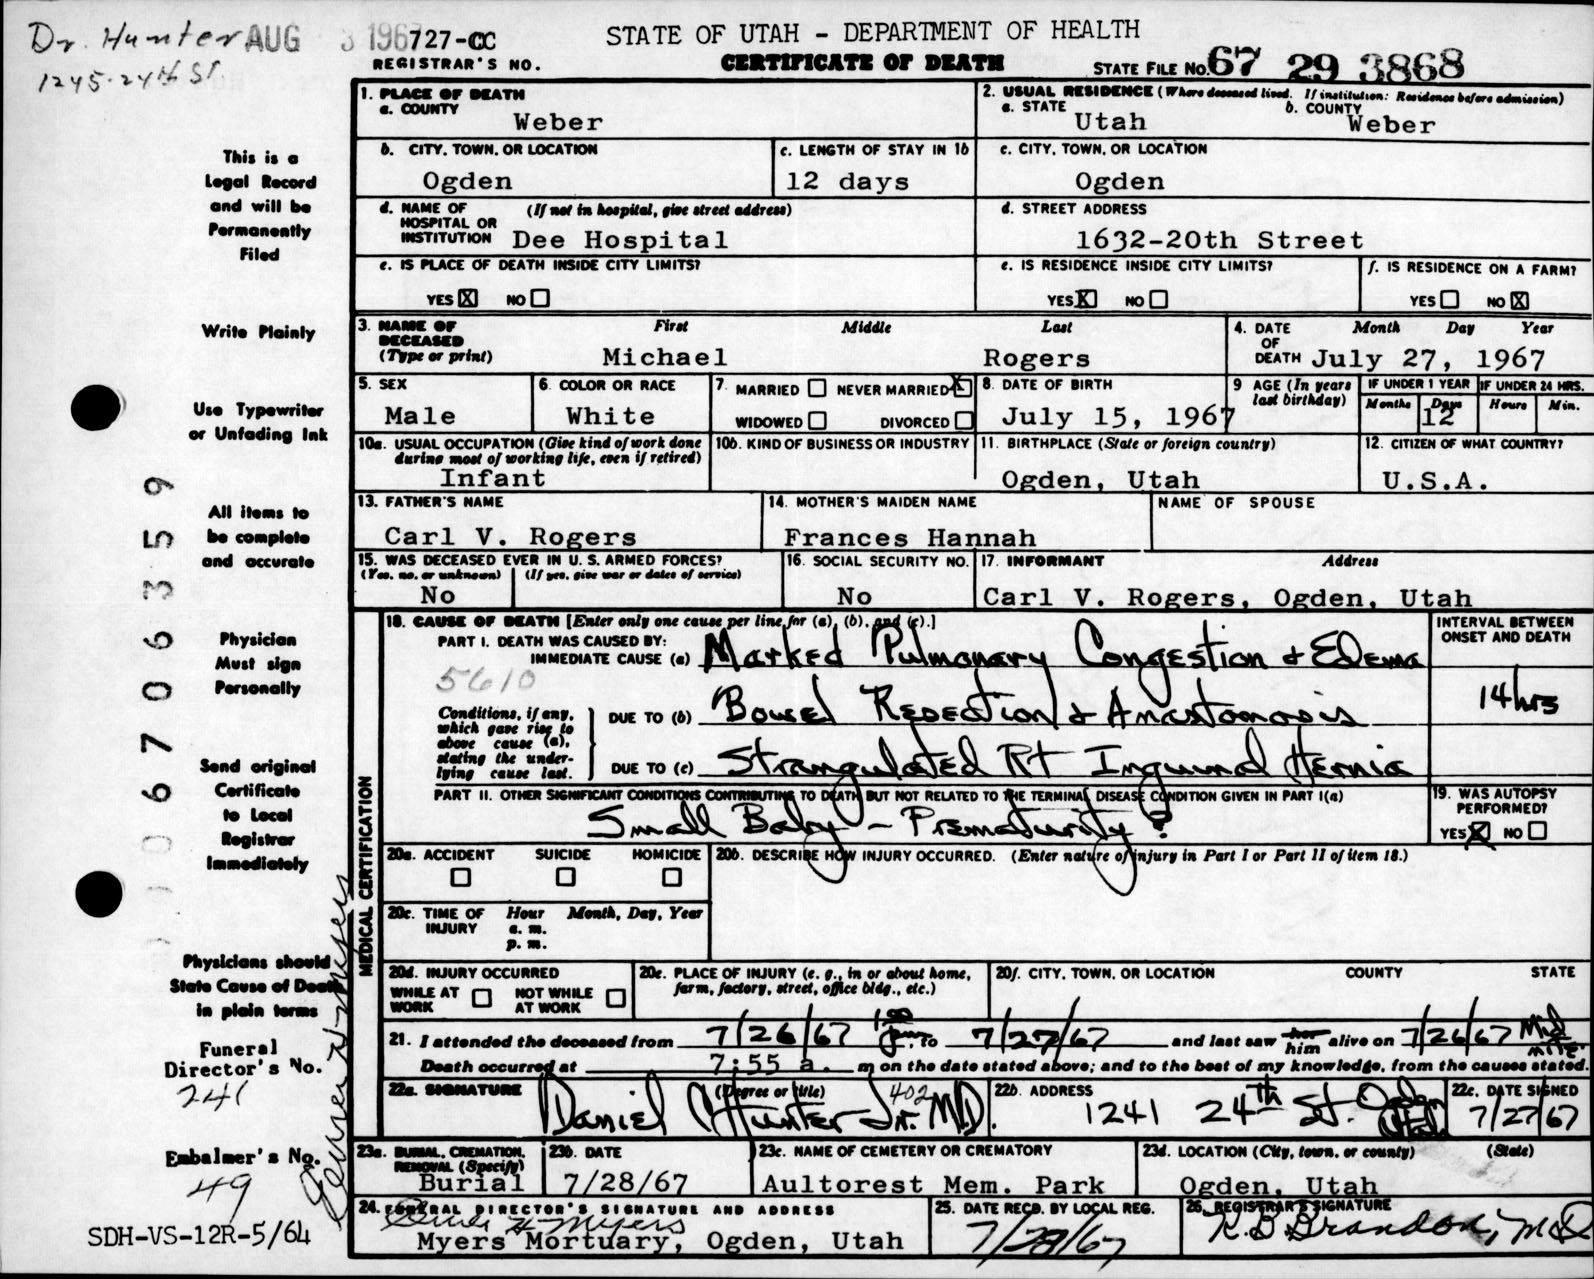 Dr. Hunter AUG 3 1967 727-CC STATE OF UTAH - DEPARTMENT OF HEALTH
1245-24th St. REGISTRAR'S NO. CERTIFICATE OF DEATH STATE FILE NO. 67 29 3868
1. PLACE OF DEATH
a. COUNTY
Weber
2. USUAL RESIDENCE (Where deceased lived. If institution: Residence before admission)
a. STATE b. COUNTY
Utah Weber
b. CITY, TOWN, OR LOCATION
Ogden
c. LENGTH OF STAY IN 1b
12 days
c. CITY, TOWN, OR LOCATION
Ogden
d. NAME OF (If not in hospital, give street address)
HOSPITAL OR
INSTITUTION Dee Hospital
d. STREET ADDRESS
1632-20th Street
e. IS PLACE OF DEATH INSIDE CITY LIMITS?
YES X NO
e. IS RESIDENCE INSIDE CITY LIMITS?
YES X NO
f. IS RESIDENCE ON A FARM?
YES NO X
3. NAME OF First Middle Last
DECEASED
(Type or print) Michael Rogers
4. DATE Month Day Year
OF
DEATH July 27, 1967
5. SEX
Male
6. COLOR OR RACE
White
7. MARRIED NEVER MARRIED X
WIDOWED DIVORCED
8. DATE OF BIRTH
July 15, 1967
9 AGE (In years
last birthday)
IF UNDER 1 YEAR IF UNDER 24 HRS.
Months Days Hours Min.
12
10a. USUAL OCCUPATION (Give kind of work done
during most of working life, even if retired)
Infant
10b. KIND OF BUSINESS OR INDUSTRY
11. BIRTHPLACE (State or foreign country)
Ogden, Utah
12. CITIZEN OF WHAT COUNTRY?
U.S.A.
13. FATHER'S NAME
Carl V. Rogers
14. MOTHER'S MAIDEN NAME
Frances Hannah
NAME OF SPOUSE
15. WAS DECEASED EVER IN U. S. ARMED FORCES?
(Yes, no, or unknown) (If yes, give war or dates of service)
No
16. SOCIAL SECURITY NO.
No
17. INFORMANT Address
Carl V. Rogers, Ogden, Utah
MEDICAL CERTIFICATION
18. CAUSE OF DEATH [Enter only one cause per line for (a), (b), and (c).]
PART I. DEATH WAS CAUSED BY:
IMMEDIATE CAUSE (a) Marked Pulmonary Congestion & Edema
5610
Conditions, if any,
which gave rise to
above cause (a),
stating the under-
lying cause last.
DUE TO (b) Bowel Resection & Anastomosis
DUE TO (c) Strangulated Rt Inguinal Hernia
INTERVAL BETWEEN
ONSET AND DEATH
14 hrs
PART II. OTHER SIGNIFICANT CONDITIONS CONTRIBUTING TO DEATH BUT NOT RELATED TO THE TERMINAL DISEASE CONDITION GIVEN IN PART I(a)
Small Baby - Prematurity?
19. WAS AUTOPSY
PERFORMED?
YES X NO
20a. ACCIDENT SUICIDE HOMICIDE
20b. DESCRIBE HOW INJURY OCCURRED. (Enter nature of injury in Part I or Part II of item 18.)
20c. TIME OF Hour Month, Day, Year
INJURY a. m.
p. m.
20d. INJURY OCCURRED
WHILE AT NOT WHILE
WORK AT WORK
20e. PLACE OF INJURY (e. g., in or about home,
farm, factory, street, office bldg., etc.)
20f. CITY, TOWN, OR LOCATION COUNTY STATE
21. I attended the deceased from 7/26/67 1:00 pm to 7/27/67 and last saw her him alive on 7/26/67 Mid nite.
Death occurred at 7:55 a. m on the date stated above; and to the best of my knowledge, from the causes stated.
22a. SIGNATURE (Degree or title) 402
Daniel Hunter Jr. M.D.
22b. ADDRESS
1241 24th St. Ogden Utah
22c. DATE SIGNED
7/27/67
23a. BURIAL, CREMATION,
REMOVAL (Specify)
Burial
23b. DATE
7/28/67
23c. NAME OF CEMETERY OR CREMATORY
Aultorest Mem. Park
23d. LOCATION (City, town, or county) (State)
Ogden, Utah
24. FUNERAL DIRECTOR'S SIGNATURE AND ADDRESS
Myers
Myers Mortuary, Ogden, Utah
25. DATE RECD. BY LOCAL REG.
7/28/67
26. REGISTRAR'S SIGNATURE
K. B. Brandon, MD
This is a
Legal Record
and will be
Permanently
Filed
Write Plainly
Use Typewriter
or Unfading Ink
All items to
be complete
and accurate
Physician
Must sign
Personally
Send original
Certificate
to Local
Registrar
Immediately
Physicians should
State Cause of Death
in plain terms
Funeral
Director's No.
241
Embalmer's No.
49
SDH-VS-12R-5/64
006706359